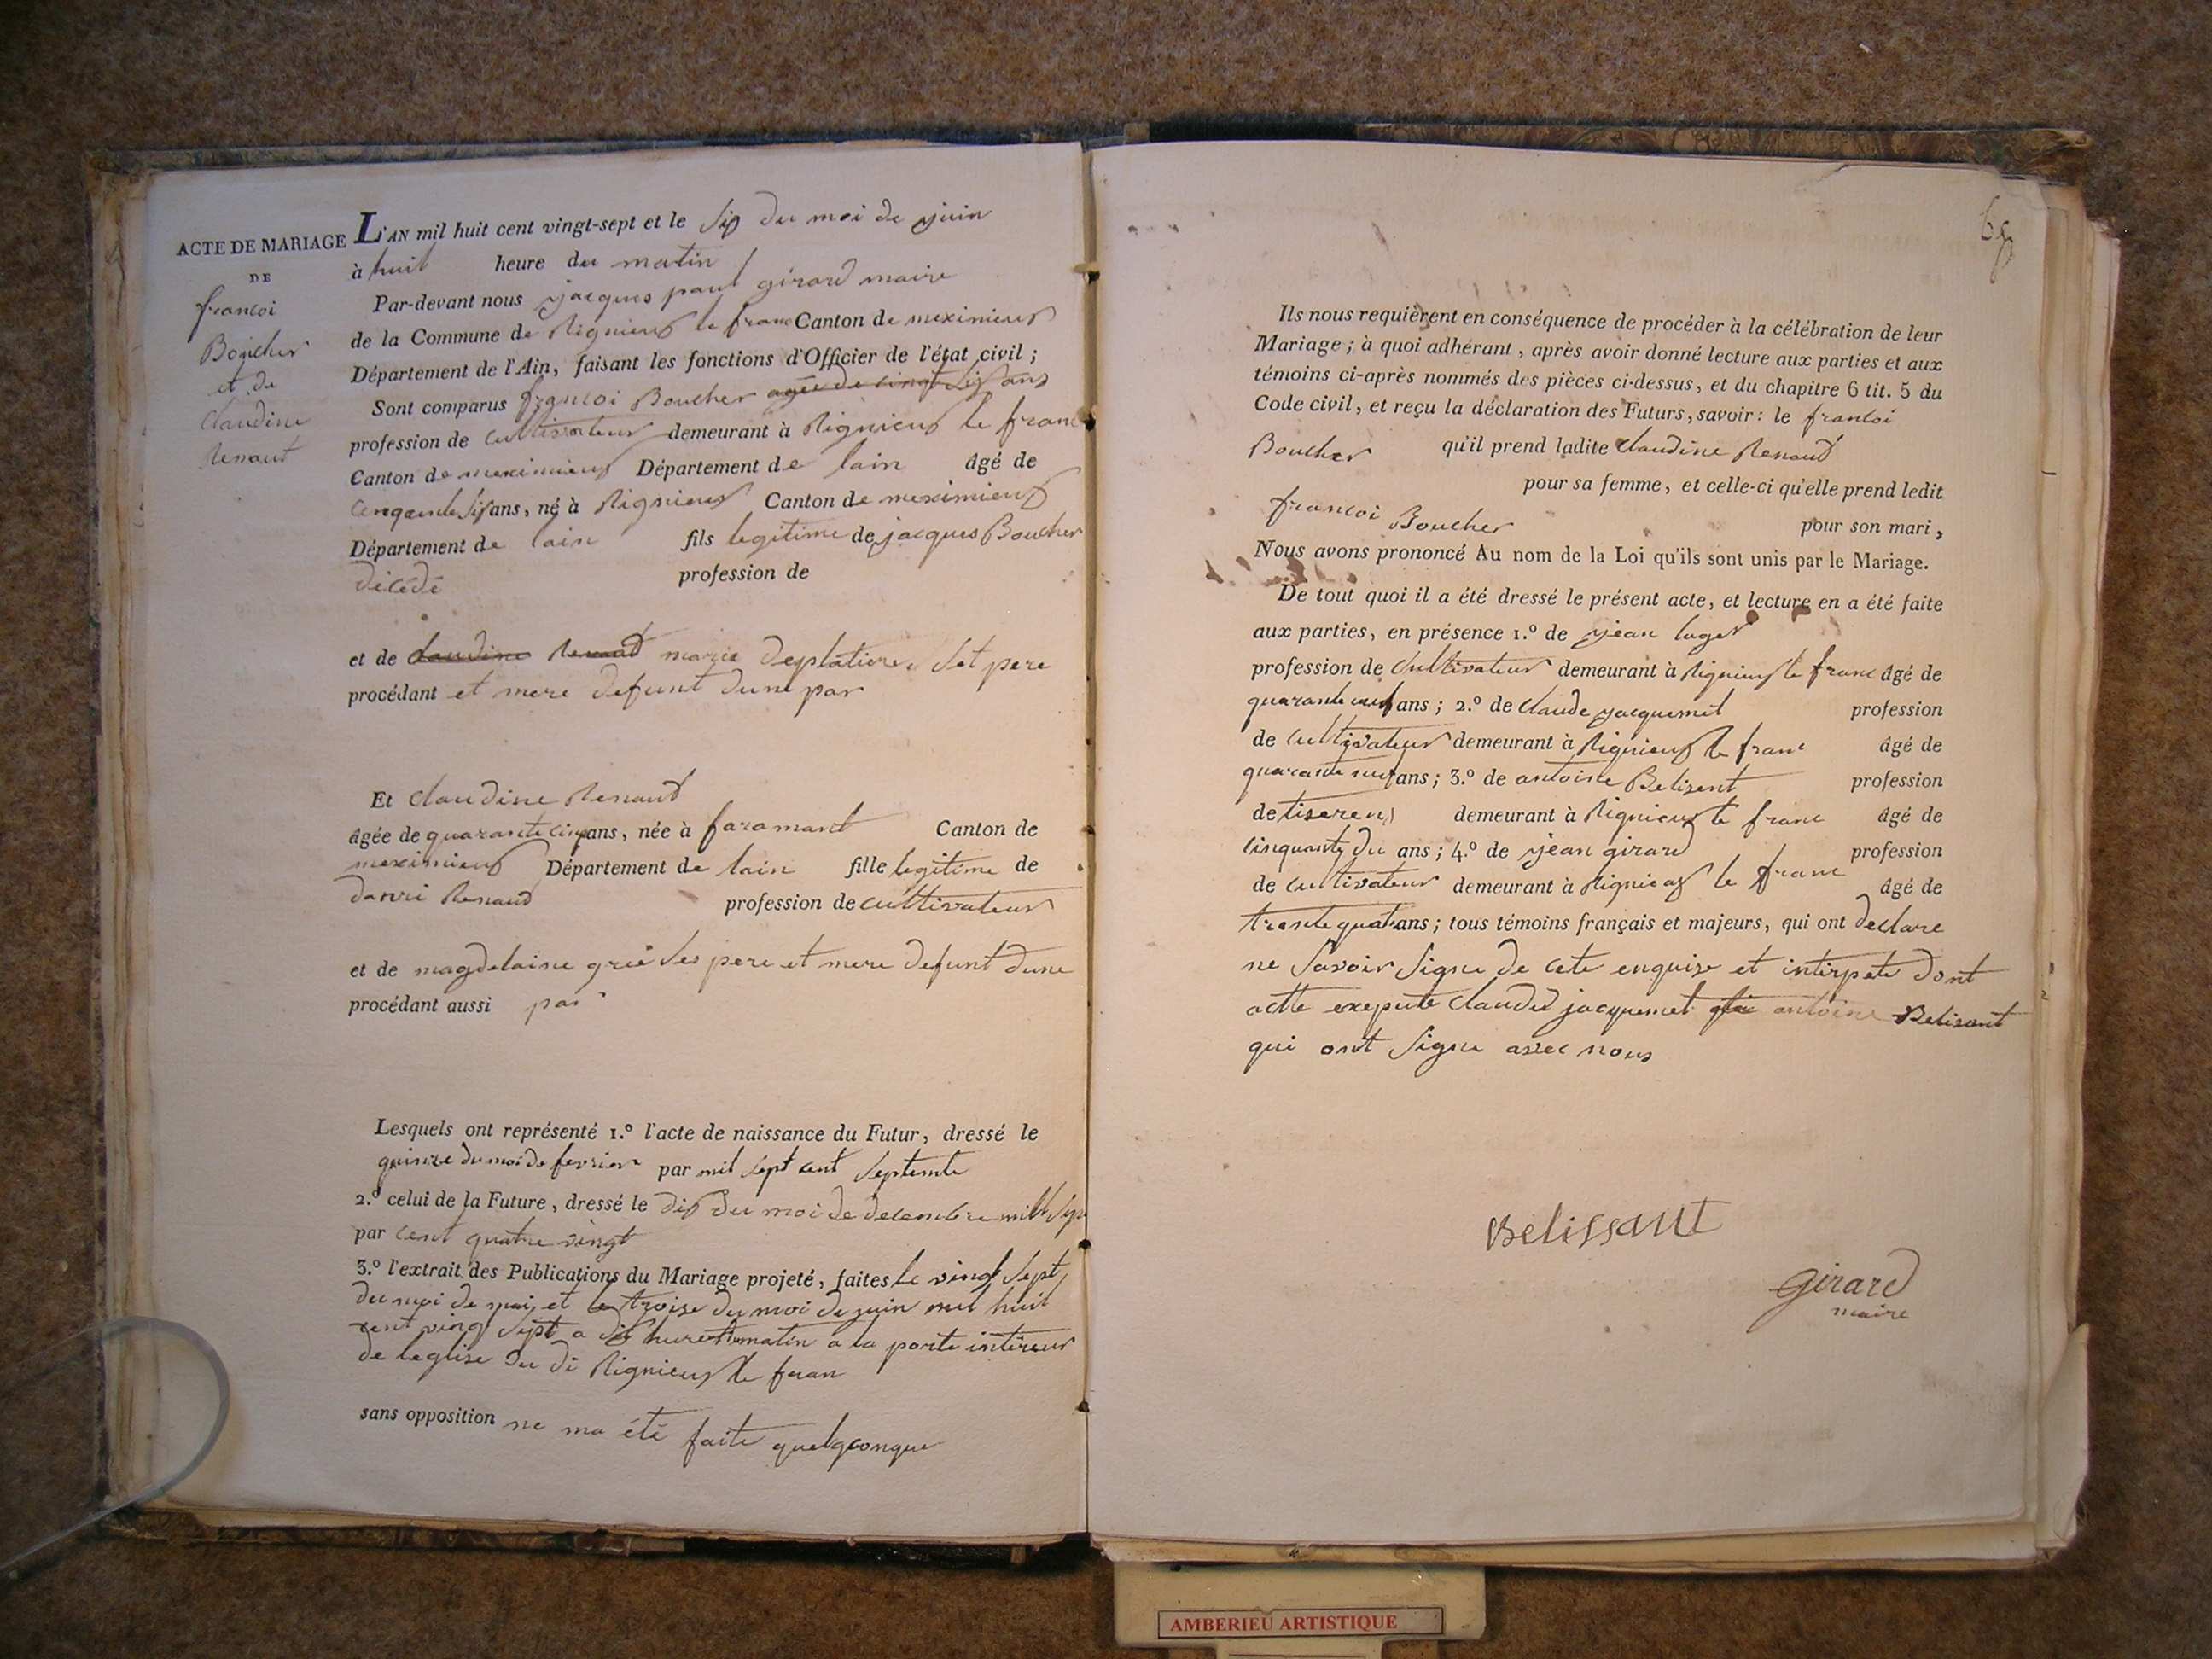 ACTE DE MARIAGE
DE
francoi
Boucher
et de
Claudine
Renaut
L'AN mil huit cent vingt-sept et le six du moi de juin
à huit heure du matin
Par-devant nous jacques paul girard maire
de la Commune de Rignieux le franc Canton de meximieux
Département de l'Ain, faisant les fonctions d'Officier de l'état civil ;
Sont comparus francoi Boucher agée de vingt six ans
profession de cultivateur demeurant à Rignieux le franc
Canton de meximieux Département de lain âgé de
ans, né à Rignieux Canton de meximieux
Département de lain fils legitime de jacques Boucher
décédé profession de
et de Claudine Renaut marie deplatiere set pere
procédant et mere defunt dune par
Et Claudine Renaud
âgée de quarante cinq ans, née à faramant Canton de
meximieux Département de lain fille legitime de
Renaud profession de cultivateur
et de magdelaine grié ses pere et mere defunt dune
procédant aussi par
Lesquels ont représenté 1.º l'acte de naissance du Futur, dressé le
quinze du moi de fevrier par mil sept cent septente
2.º celui de la Future, dressé le dix du moi de decembre mill sept
par cent quatre vingt
3.º l'extrait des Publications du Mariage projeté, faites le vingt sept
du moi de mai et le troise du moi de juin mil huit
cent vingt sept a dix hures du matin a la porte intérieur
de leglise du di Rignieux le fran
sans opposition ne ma été faite quelqconque
Ils nous requièrent en conséquence de procéder à la célébration de leur
Mariage ; à quoi adhérant, après avoir donné lecture aux parties et aux
témoins ci-après nommés des pièces ci-dessus, et du chapitre 6 tit. 5 du
Code civil, et reçu la déclaration des Futurs, savoir : le francoi
Boucher qu'il prend ladite Claudine Renaud
pour sa femme, et celle-ci qu'elle prend ledit
francoi Boucher pour son mari,
Nous avons prononcé Au nom de la Loi qu'ils sont unis par le Mariage.
De tout quoi il a été dressé le présent acte, et lecture en a été faite
aux parties, en présence 1.º de jean luget
profession de Cultivateur demeurant à Rignieux le franc âgé de
quarante ans ; 2.º de Claude jacquemet profession
de Cultivateur demeurant à Rignieux le franc âgé de
quarante neuf ans ; 3.º de antoine Belisent profession
de tiseren demeurant à Rignieux le franc âgé de
cinquante du ans ; 4.º de jean girard profession
de cultivateur demeurant à Rignieux le franc âgé de
trente quatr ans ; tous témoins français et majeurs, qui ont declare
ne savoir signe de cete enquise et intirpete dont
actte exepute Claude jacquemet antoine Belisant
qui ont signe avec nous
Belissant
Girard
maire
AMBERIEU ARTISTIQUE